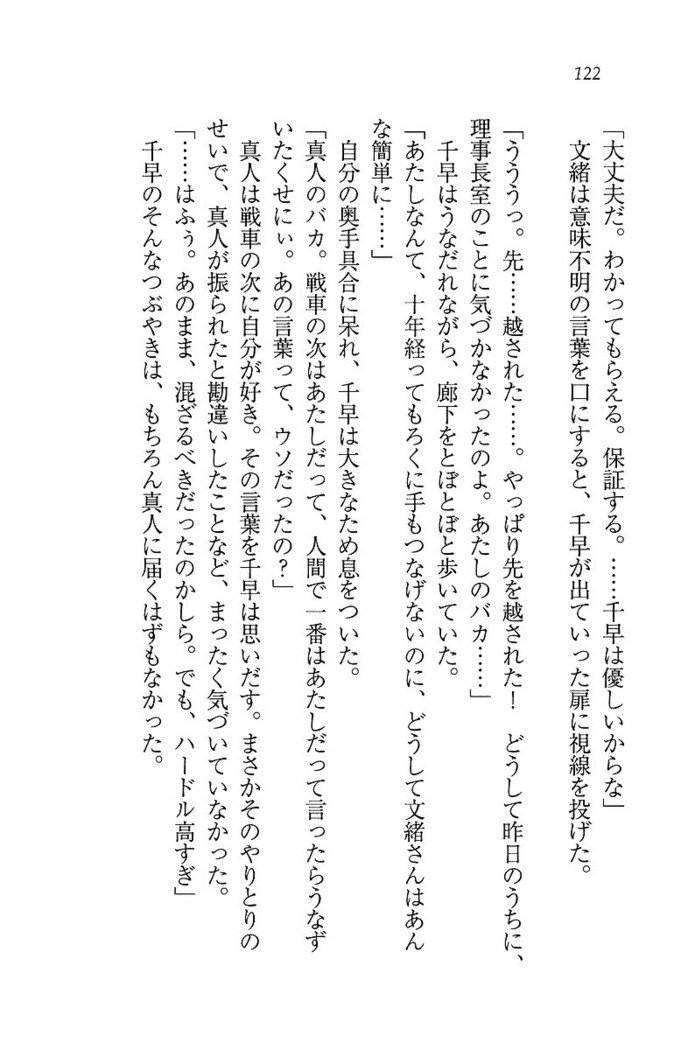 122
「大丈夫だ。わかってもらえる。保証する。……千早は優しいからな」
文緒は意味不明の言葉を口にすると、千早が出ていった扉に視線を投げた。
「うううっ。先……越された……。やっぱり先を越された！　どうして昨日のうちに、
理事長室のことに気づかなかったのよ。あたしのバカ……」
千早はうなだれながら、廊下をとぼとぼと歩いていた。
「あたしなんて、十年経ってもろくに手もつなげないのに、どうして文緒さんはあん
な簡単に……」
自分の奥手具合に呆れ、千早は大きなため息をついた。
「真人のバカ。戦車の次はあたしだって、人間で一番はあたしだって言ったらうなず
いたくせにぃ。あの言葉って、ウソだったの？」
真人は戦車の次に自分が好き。その言葉を千早は思いだす。まさかそのやりとりの
せいで、真人が振られたと勘違いしたことなど、まったく気づいていなかった。
「……はふぅ。あのまま、混ざるべきだったのかしら。でも、ハードル高すぎ」
千早のそんなつぶやきは、もちろん真人に届くはずもなかった。